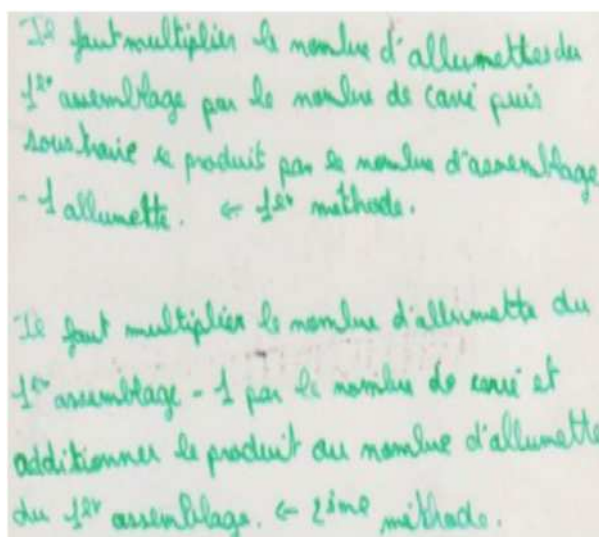 Il faut multiplier le nombre d'allumettes du
1er assemblage par le nombre de carré puis
soustraire le produit par le nombre d'assemblage
- 1 allumette. ← 1er méthode.
Il faut multiplier le nombre d'allumette du
1er assemblage - 1 par le nombre de carré et
additionner le produit au nombre d'allumette
du 1er assemblage. ← 2ème méthode.